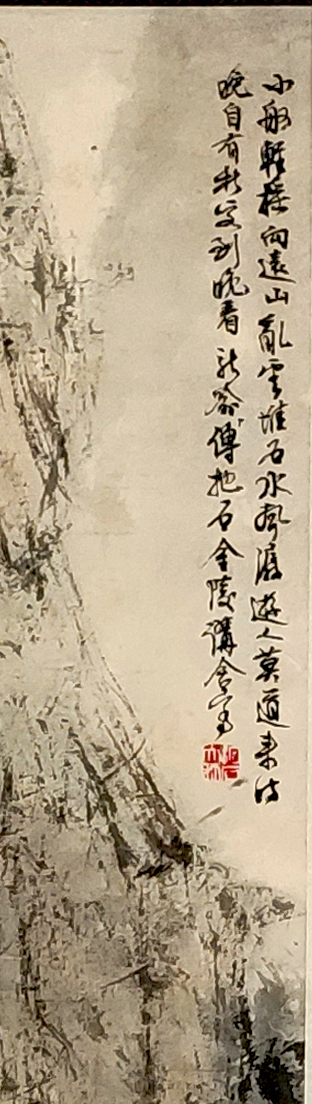 小船輕向遠山亂雲堆石水聲潺遊人莫道來時
晚自有秋容到晚看 新喻傅抱石金陵講舍寫